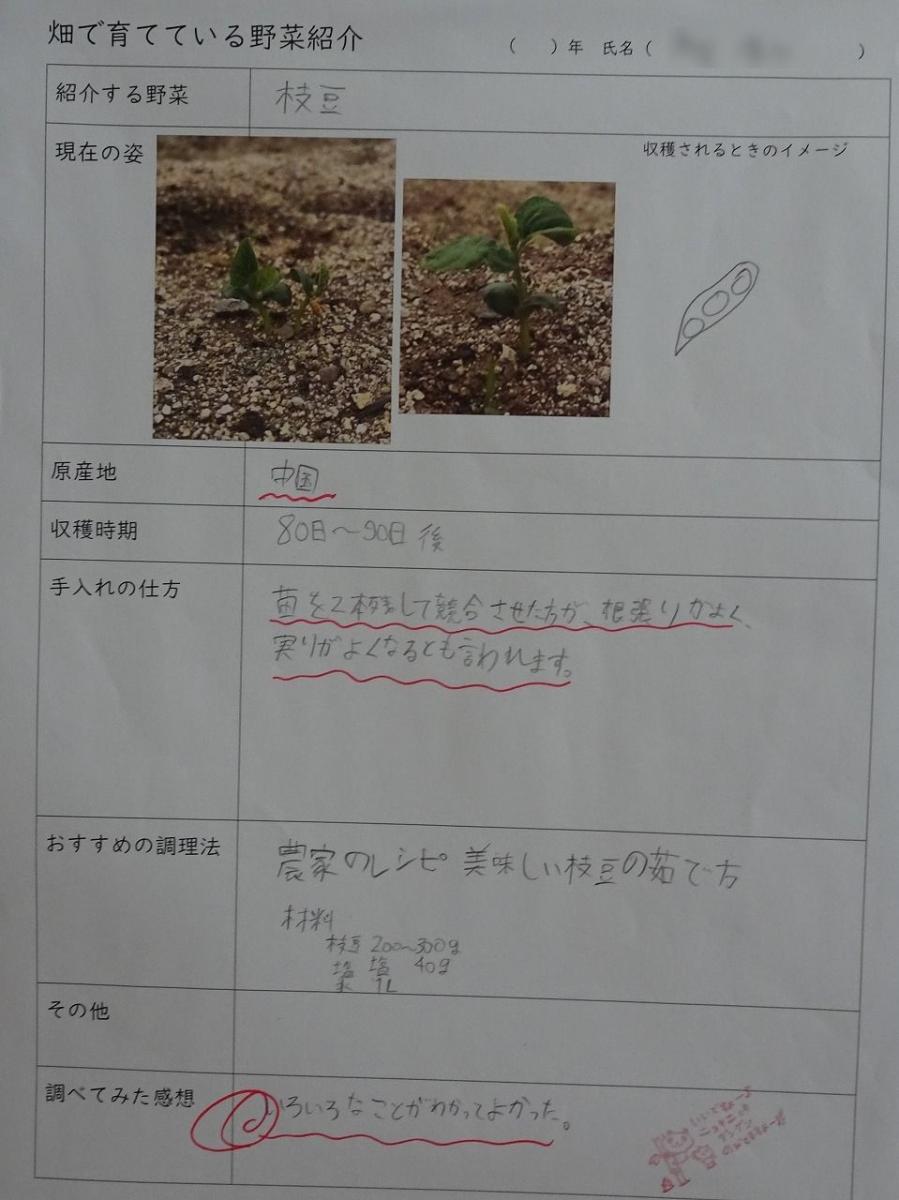 畑で育てている野菜紹介
（　）年　氏名（　　　）
紹介する野菜
枝豆
現在の姿
収穫されるときのイメージ
原産地
中国
収穫時期
80日～90日後
手入れの仕方
苗を2本残して競合させた方が、根張りがよく、
実りがよくなるとも言われます。
おすすめの調理法
農家のレシピ 美味しい枝豆の茹で方
材料
枝豆 200～300g
塩 塩 40g
水 1L
その他
調べてみた感想
いろいろなことがわかってよかった。